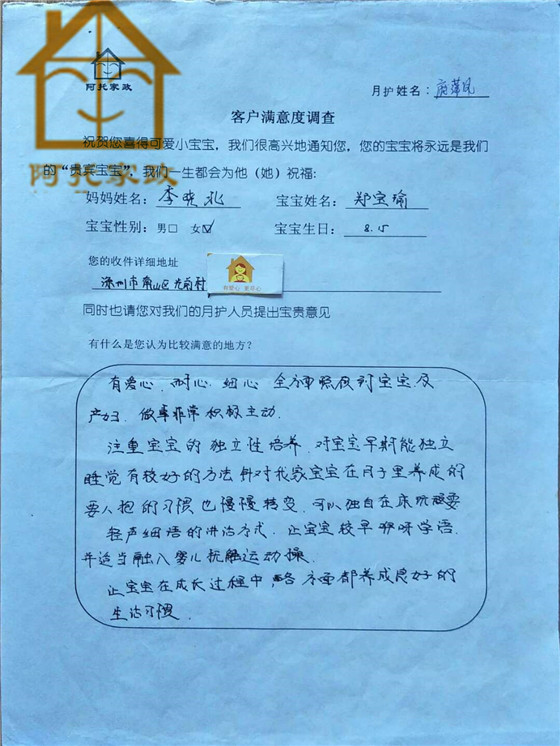 阿托家政
阿托家政
月护姓名：
客户满意度调查
祝贺您喜得可爱小宝宝，我们很高兴地通知您，您的宝宝将永远是我们
的“贵宾宝宝”，我们一生都会为他（她）祝福：
妈妈姓名：李晓礼 宝宝姓名：郑宝瑜
宝宝性别：男□ 女☑ 宝宝生日：8.15
您的收件详细地址
市 山区 前村
有爱心 更尽心
同时也请您对我们的月护人员提出宝贵意见
有什么是您认为比较满意的地方？
有爱心、耐心、细心 全方面照顾到宝宝及
产妇．做事非常积极主动．
注重宝宝的独立性培养．对宝宝早期能独立
睡觉有较好的方法 针对我家宝宝在月子里养成的
要人抱的习惯也慢慢转变．可以独自在床玩耍
轻声细语的讲话方式．让宝宝较早咿呀学语．
并适当融入婴儿抚触运动操．
让宝宝在成长过程中 各方面都养成良好的
生活习惯